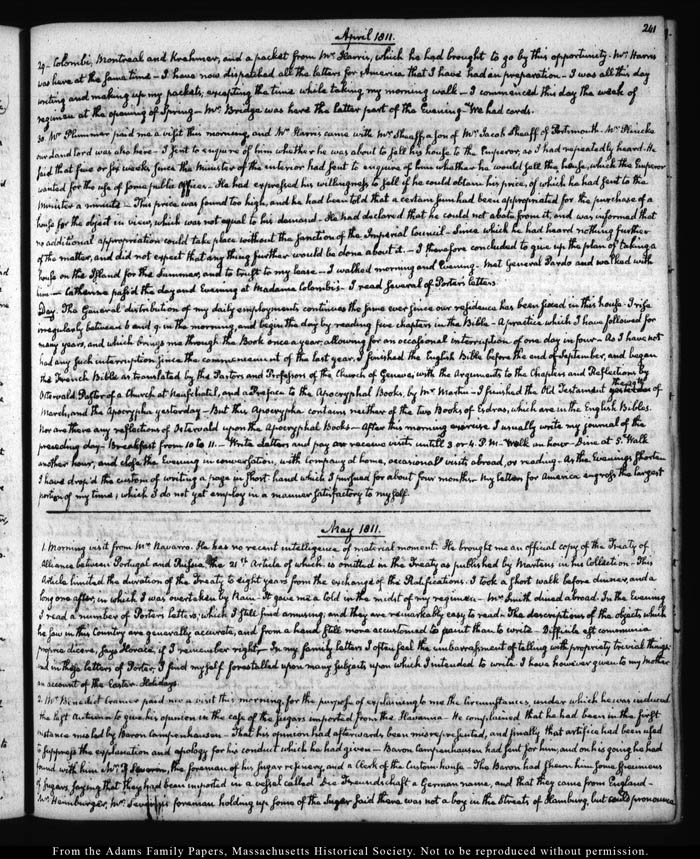 241
April 1811.
29. Colombi, Montreal and Krehmer, and a packet from Mr. Harris, which he had brought to go by this opportunity. Mr Harris
was here at the same time — I have now dispatched all the letters for America that I have had in preparation — I was all this day
writing and making up my packets, excepting the time while taking my morning walk — I commenced this day the week of
regimen at the opening of Spring — Mr. Bridge was here the latter part of the Evening — We had cards.
30. Mr Plummer paid me a visit this morning, and Mr Harris came with Mr Sheaff, a son of Mr Jacob Sheaff of Portsmouth. Mr
our Landlord was also here — I sent to enquire of him whether he was about to sell his house to the Emperor, as I had repeatedly heard. He
said that five or six weeks since the Minister of the interior had sent to enquire of him whether he would sell the house, which the Emperor
wanted for the use of some public Office. — He had expressed his willingness to sell if he could obtain his price, of which he had sent to the
Minister a minute — This price was found too high, and he had been told that a certain sum had been appropriated for the purchase of a
house for the object in view, which was not equal to his demand. He had declared that he could not abate from it, and was informed that
no additional appropriation could take place without the sanction of the Imperial Council — Since which he had heard nothing further
of the matter, and did not expect that any thing further would be done about it. — I therefore concluded to give up the plan of taking a
house on the Island for the Summer, and to trust to my lease — I walked morning and Evening — Met General Pardo and walked with
him — Catherine pass'd the day and Evening at Madame Colombi's — I read several of Porter's letters.
Day. The General distribution of my daily employments continues the same ever since our residence has been fixed in this house — I rise
irregularly between 6 and 9 in the morning, and begin the day by reading five chapters in the Bible — A practice which I have followed for
many years, and which brings me through the Book once a year, allowing for an occasional interruption of one day in four — As I have not
had any such interruption since the commencement of the last year, I finished the English Bible before the end of September, and began
the French Bible as translated by the Pastors and Professors of the Church of Geneva, with the Arguments to the Chapters and Reflections by
Ostervald Pastor of a Church at Neufchatel, and a Preface to the Apocryphal Books, by Mr. Martin — I finished the Old Testament the 29th of
March, and the Apocrypha yesterday — But this Apocrypha contains neither of the two Books of Esdras, which are in the English Bibles.
Nor are there any reflections of Ostervald upon the Apocryphal Books — After this morning exercise I usually write my journal of the
preceding day — Breakfast from 10 to 11 — Write letters and pay or receive visits until 3 or 4 P.M — Walk an hour — Dine at 5. Walk
another hour, and close the Evening in conversation, with Company at home, occasional visits abroad, or reading — As the Evenings shorten
I have drop'd the custom of writing a page in short-hand which I pursued for about four months. My letters for America engross the largest
portion of my time, which I do not yet employ in a manner satisfactory to myself.
May 1811.
1. Morning visit from Mr Navarro. He has no recent intelligence of material moment. He brought me an official copy of the Treaty of
Alliance between Portugal and Russia, the 21st Article of which is omitted in the Treaty as published by Martens in his Collection — This
Article limited the duration of the Treaty to eight years from the exchange of the Ratifications. I took a short walk before dinner, and a
long one after, in which I was overtaken by Rain — It gave me a cold in the midst of my regimen — Mr Smith dined abroad. In the Evening
I read a number of Porter's letters, which I still find amusing, and they are remarkably easy to read. The descriptions of the objects which
he saw in this Country are generally accurate, and from a hand still more accustomed to paint than to write — Difficile est communia
proprie dicere, says Horace, if I remember right — In my family letters I often feel the embarrassment of telling with propriety trivial things
and in these letters of Porter, I find myself forestalled upon many subjects upon which I intended to write. I have however given to my Mother
an account of the Easter Holidays.
2. Mr Benedict Cramer paid me a visit this morning, for the purpose of explaining to me the Circumstances, under which he was induced
the last Autumn to give his opinion in the case of the sugars imported from the Havanna — He complained that he had been in the first
instance misled by Baron Campenhausen — That his opinion had afterwards been misrepresented, and finally that artifice had been used
to suppress the explanation and apology for his conduct which he had given — Baron Campenhausen had sent for him, and on his going he had
found with him Mr. Severin, the foreman of his sugar refinery, and a Clerk of the Custom-house — The Baron had shewn him some specimens
of Sugars, saying that they had been imported in a vessel called Die Freundschaft a German name, and that they came from England —
Mr Hemburger, Mr. Severin's foreman holding up some of the Sugar said there was not a boy in the streets of Hamburg, but could pronounce
From the Adams Family Papers, Massachusetts Historical Society. Not to be reproduced without permission.